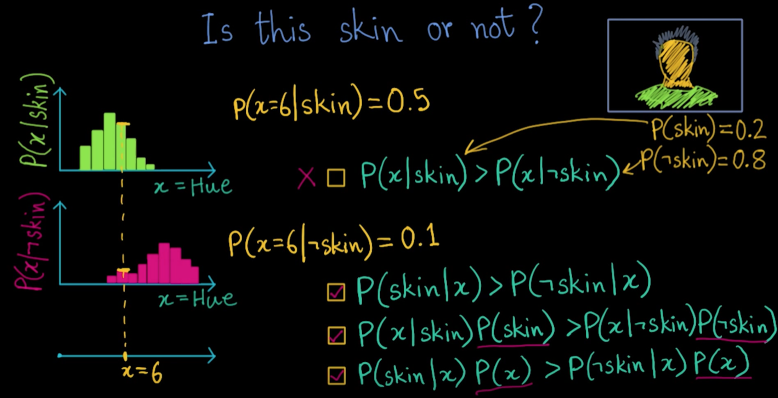 Is this skin or not?
P(x|skin)
x = Hue
P(x=6|skin) = 0.5
P(skin) = 0.2
P(¬skin) = 0.8
X P(x|skin) > P(x|¬skin)
P(x|¬skin)
x = Hue
P(x=6|¬skin) = 0.1
P(skin|x) > P(¬skin|x)
P(x|skin) P(skin) > P(x|¬skin) P(¬skin)
P(skin|x) P(x) > P(¬skin|x) P(x)
x=6